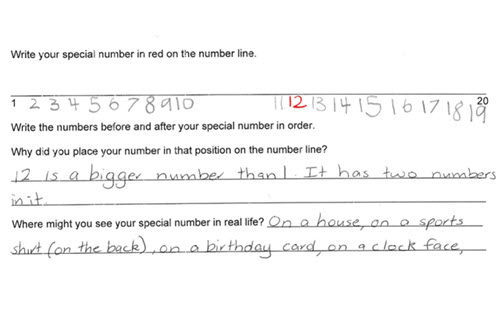 Write your special number in red on the number line.
1 2 3 4 5 6 7 8 9 10 11 12 13 14 15 16 17 18 19 20
Write the numbers before and after your special number in order.
Why did you place your number in that position on the number line?
12 is a bigger number than 1. It has two numbers
in it.
Where might you see your special number in real life? On a house, on a sports
shirt (on the back), on a birthday card, on a clock face,